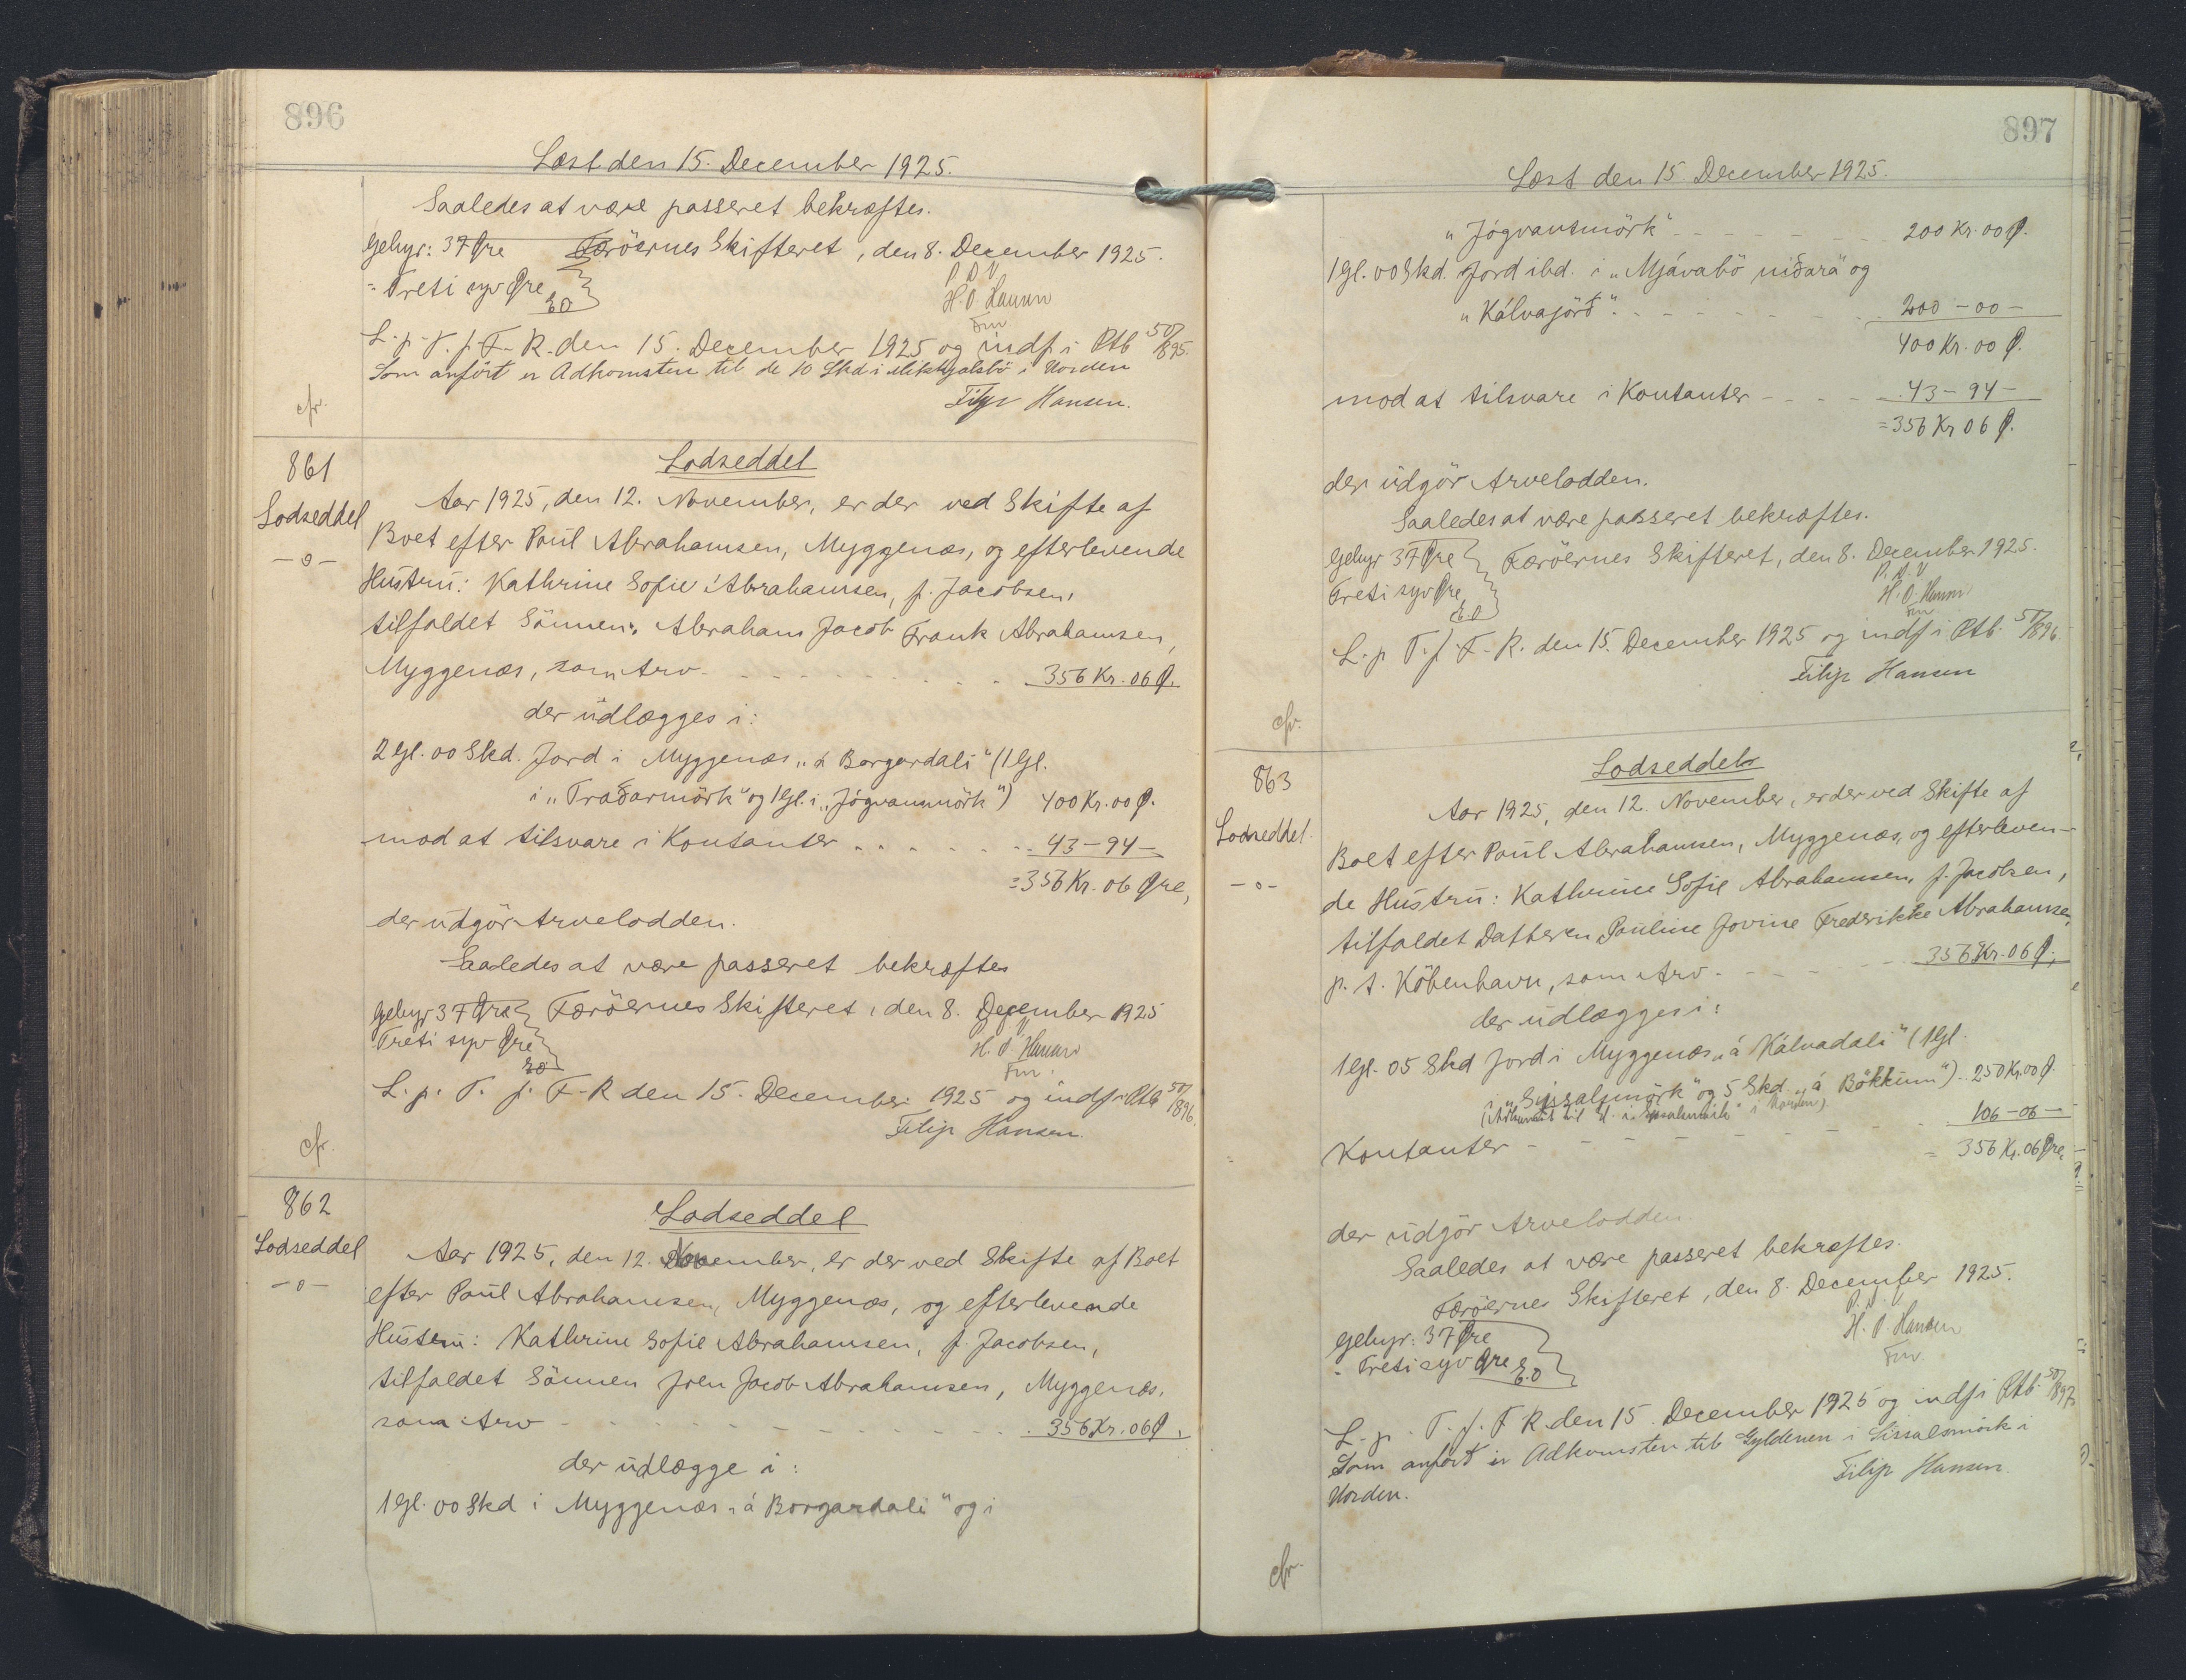 896
Læst den 15. December 1925.
Saaledes at være passeret bekræftes.
Gebyr: 37 Øre Færöernes Skifteret, den 8. December 1925.
= Treti syv Øre P.D.V
EO H. O. Hansen
Fm.
L. p. T. f. F. R. den 15. December 1925 og indf i Ptb 50/895.
Som anfört er Adkomsten til de 10 Skd i Mikkjalsbö i Uorden
Filip Hansen.
cfr.
861
Lodseddel
Lodseddel
-o-
Aar 1925, den 12. November, er der ved Skifte af
Boet efter Poul Abrahamsen, Myggenæs, og efterlevende
Hustru: Kathrine Sofie Abrahamsen, f. Jacobsen,
tilfaldet Sönnen: Abraham Jacob Frank Abrahamsen,
Myggenæs, som Arv - - - 356 Kr. 06 Ø.
der udlægges i:
2 Gl. 00 Skd. Jord i Myggenæs „á Borgardali" (1 Gl.
i „Traðarmörk" og 1 Gl. i „Jógvansmörk") 400 Kr. 00 Ø.
mod at tilsvare i Kontanter - - - 43-94-
=356 Kr. 06 Øre,
der udgör Arvelodden.
Saaledes at være passeret bekræftes
Gebyr 37 Øre Færöernes Skifteret, den 8. December 1925
Treti syv Øre P.D.V
EO H. O. Hansen
Fm.
L. p. T. f. F. R den 15. December 1925 og indf i Ptb 50/896.
Filip Hansen.
cfr.
862
Lodseddel
Lodseddel
-o-
Aar 1925, den 12. November, er der ved Skifte af Boet
efter Poul Abrahamsen, Myggenæs, og efterlevende
Hustru: Kathrine Sofie Abrahamsen, f. Jacobsen,
tilfaldet Sönnen Joen Jacob Abrahamsen, Myggenæs,
som Arv - - - 356 Kr. 06 Ø,
der udlægge i:
1 Gl. 00 Skd i Myggenæs „á Borgardali" og i
897
Læst den 15. December 1925.
„Jógvansmörk" - - - 200 Kr. 00 Ø.
1 Gl. 00 Skd. Jord ibd. i „Mjávabö niðara" og
„Kálvajörð" - - - 200-00-
400 Kr. 00 Ø.
mod at tilsvare i Kontanter - - - 43-94-
=356 Kr 06 Ø.
der udgör Arvelodden.
Saaledes at være passeret bekræftes.
Gebyr 37 Øre Færöernes Skifteret, den 8. December 1925.
Treti syv Øre P.D.V
EO H. O. Hansen
Fm.
L. p T. f. F. R. den 15. December 1925 og indf i Ptb. 50/896.
Filip Hansen
cfr.
863
Lodseddel
Lodseddel.
-o-
Aar 1925, den 12. November, er der ved Skifte af
Boet efter Poul Abrahamsen, Myggenæs, og efterleven-
de Hustru: Kathrine Sofie Abrahamsen, f. Jacobsen,
tilfaldet Datteren Pauline Jovine Frederikke Abrahamsen,
p. t. Köbenhavn, som Arv - - - 356 Kr. 06 Ø,
der udlægges i:
1 Gl. 05 Skd Jord i Myggenæs „á Kálvadali" (1 Gl.
i „Sissalsmörk" og 5 Skd. „á Bökkum") 250 Kr. 00 Ø.
(Adkomst til Gl. i Sissalsmörk i Uorden)
Kontanter - - - 106-06-
= 356 Kr. 06 Øre,
der udgör Arvelodden.
Saaledes at være passeret bekræftes.
Færöernes Skifteret, den 8. December 1925.
Gebyr: 37 Øre P.D.V.
= Treti syv Øre H. O. Hansen
E.O Fm.
L. p. T. f. F R den 15. December 1925 og indf i Ptb. 50/897.
Som anfört er Adkomsten til Gyldenen i Sissalsmörk i
Uorden. Filip Hansen.
cfr.